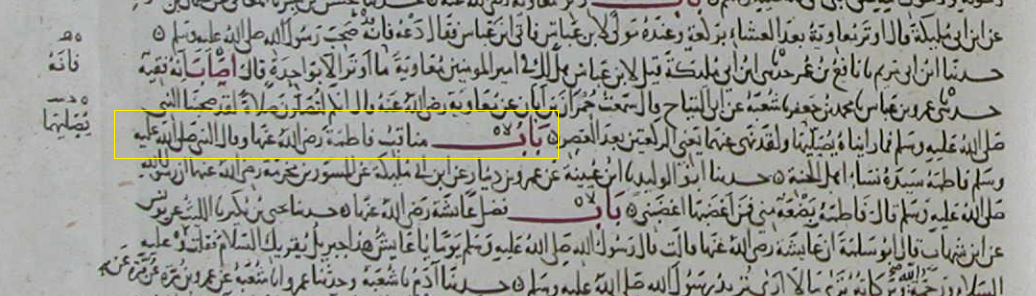 عن ابن ابي مليكة قال اوتر معاوية بعد العشاء بركعة وعنده مولى لابن عباس فاتى ابن عباس فقال دعه فانه قد صحب رسول الله صلى الله عليه وسلم ه
حدثنا ابن ابي مريم نا نافع بن عمر حدثني ابن ابي مليكة قيل لابن عباس هل لك في امير المومنين معاوية ما اوتر الا بواحدة قال اصاب انه فقيه
حدثني عمرو بن عباس نا محمد بن جعفر نا شعبة عن ابي التياح قال سمعت حمران بن ابان عن معاوية رضي الله عنه قال انكم لتصلون صلاة لقد صحبنا النبي
صلى الله عليه وسلم فما رايناه يصليها ولقد نهى عنهما يعني الركعتين بعد العصر ه باب مناقب فاطمة رضي الله عنها وقال النبي صلى الله عليه
وسلم فاطمة سيدة نساء اهل الجنة ه حدثنا ابو الوليد نا ابن عيينة عن عمرو بن دينار عن ابن ابي مليكة عن المسور بن مخرمة رضي الله عنهما ان رسول الله
صلى الله عليه وسلم قال فاطمة بضعة مني فمن اغضبها اغضبني ه باب فضل عائشة رضي الله عنها ه حدثنا يحيى بن بكير نا الليث عن يونس
عن ابن شهاب قال ابو سلمة ان عايشة رضي الله عنها قالت قال رسول الله صلى الله عليه وسلم يوما يا عايش هذا جبريل يقريك السلام فقلت وعليه
السلام ورحمة الله وبركاته ترى ما لا ارى تريد رسول الله صلى الله عليه وسلم ه حدثنا آدم نا شعبة وحدثنا عمرو انا شعبة عن عمرو بن مرة عن مرة
فانه
يصليهما